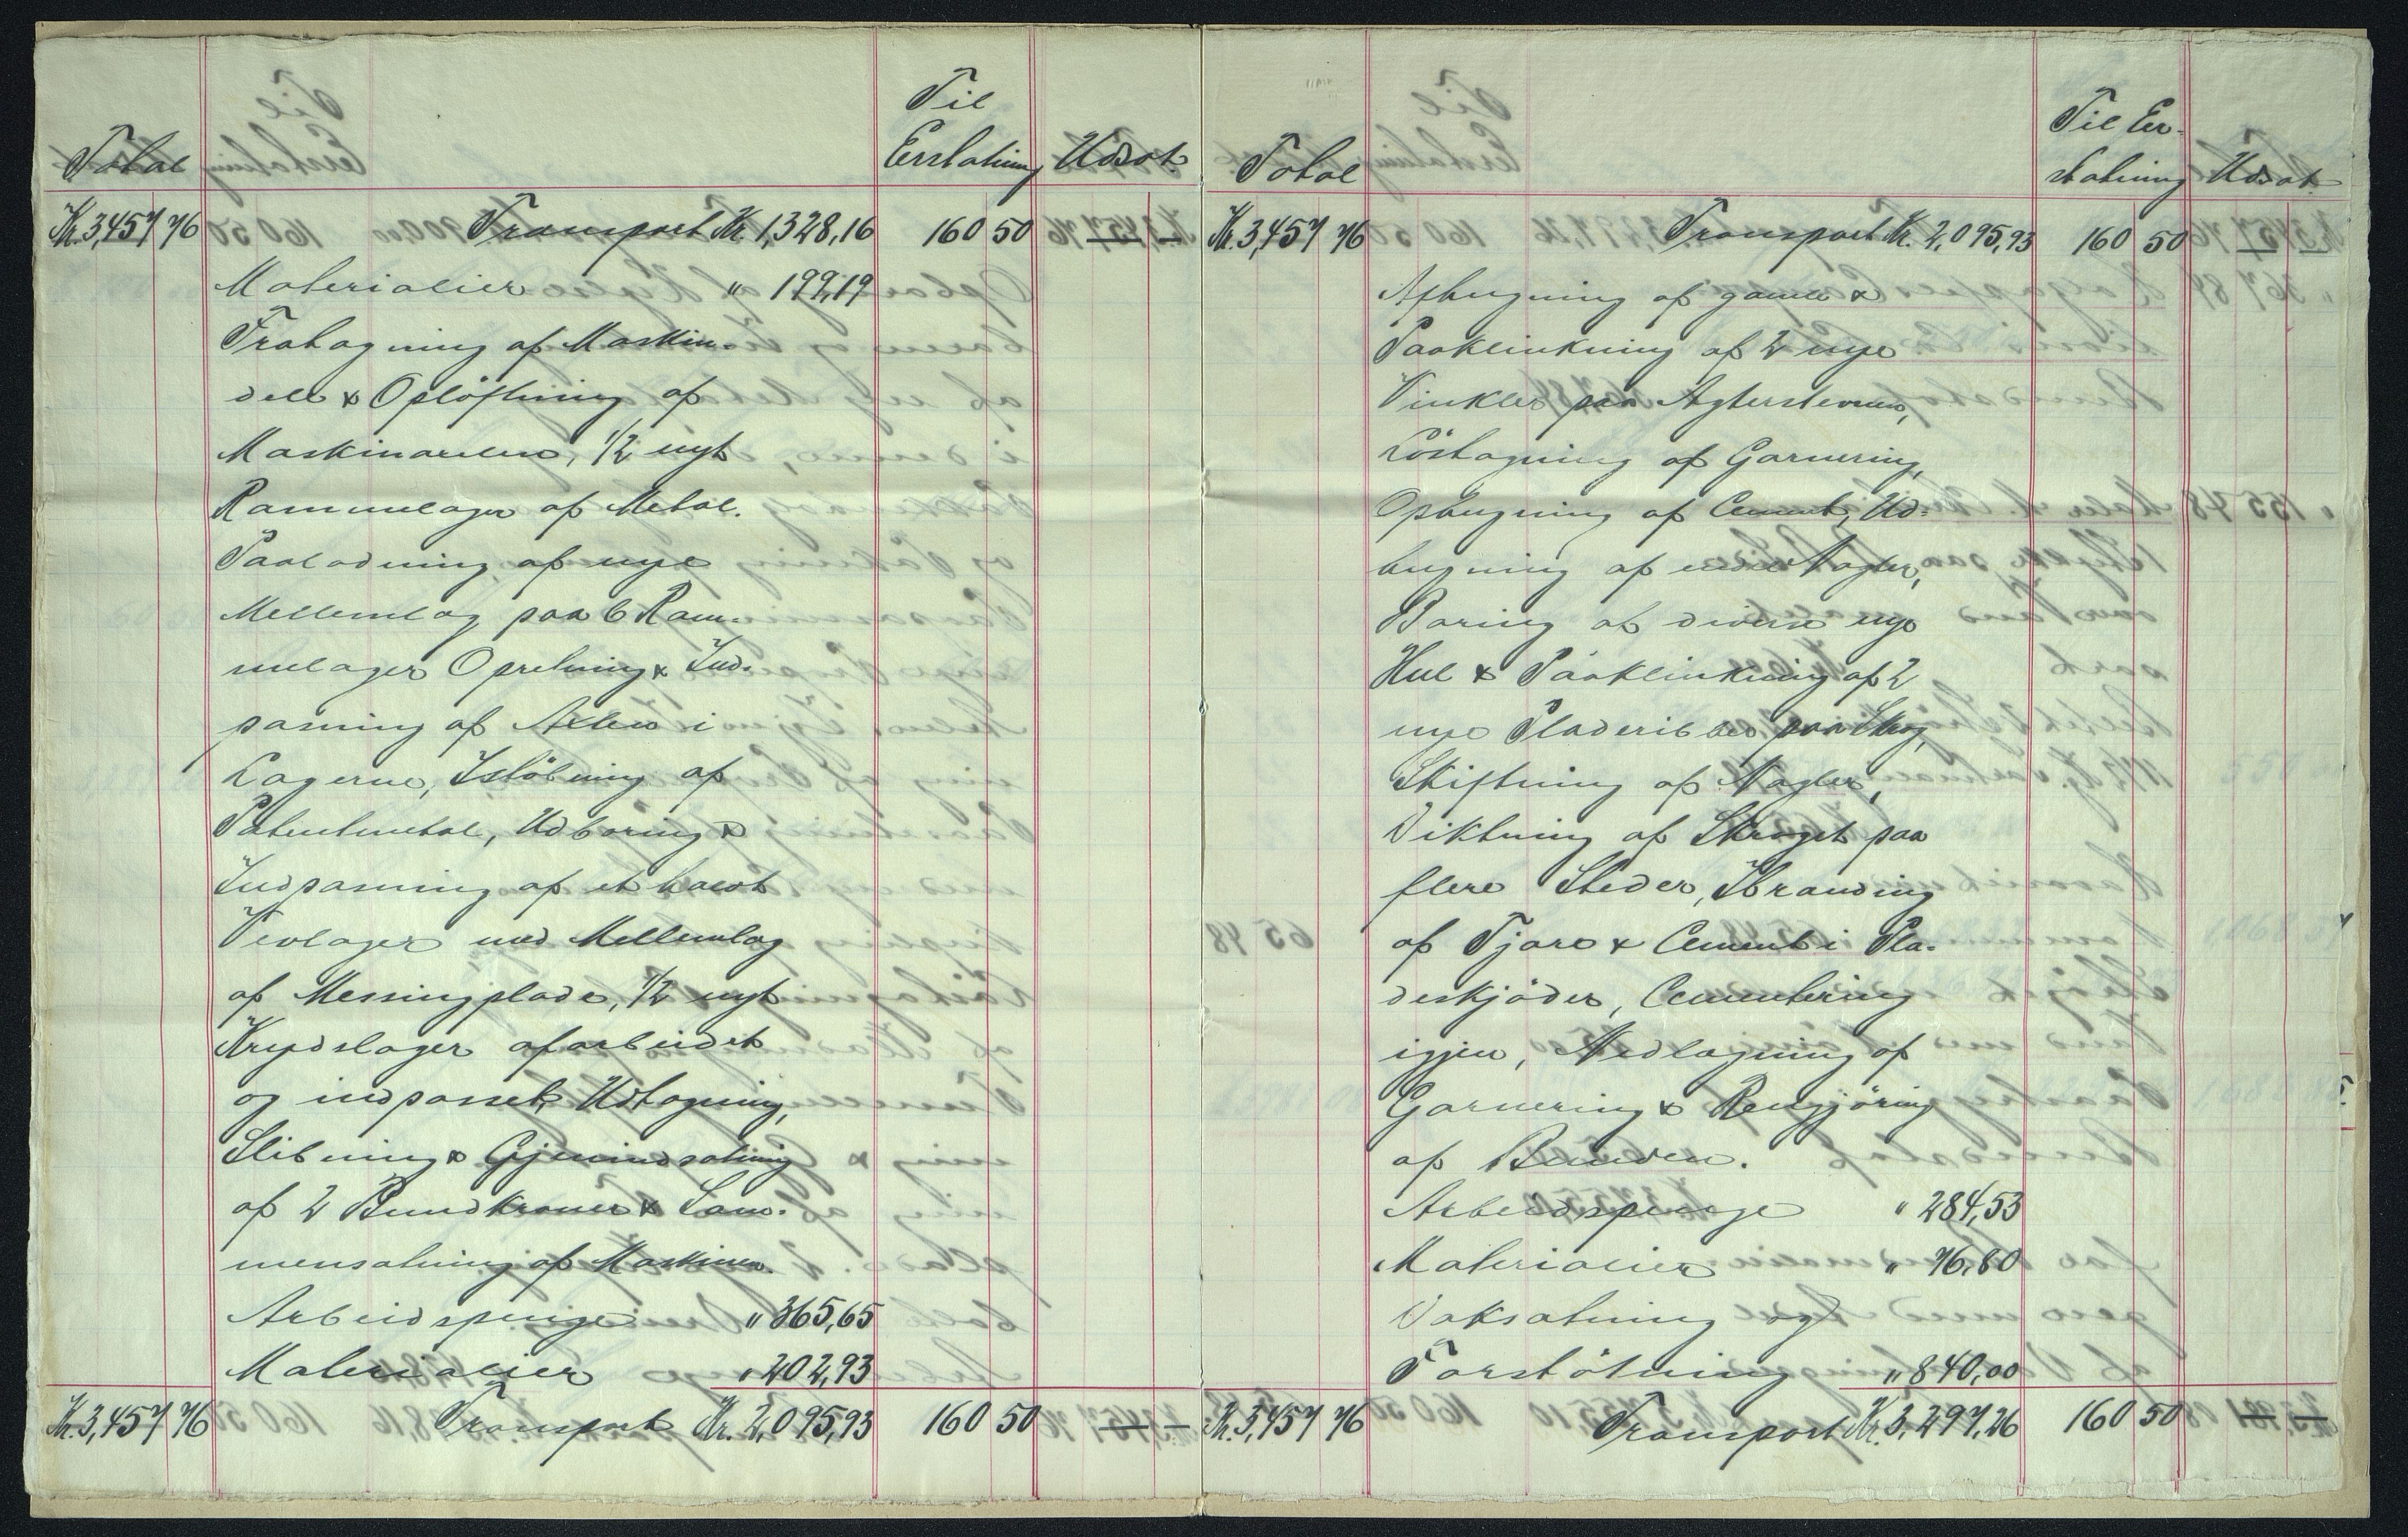 Total
Til
Erstatning
Udsat
Kr. 3,457 76
Transport Kr. 1,328,16
160 50
Materialier " 199,19
Fratagning af Maskin-
dele & Opløftning af
Maskinaxlen, 1/2 nyt
Rammelager af Metal.
Paalodning af nye
Mellemlag paa 6 Ram-
melager Opretning & Ind-
pasning af Axlen i
Lagerne, Istöbning af
Patentmetal, Udboring &
Indpasning af et halvt
Vevlager med Mellemlag
af Messingplade, 1/2 nyt
Krydslager afarbeidet
og indpasset, Udtagning,
Slibning & Gjenindsætning
af 2 Bundkraner & Sam-
mensætning af Maskinen.
Arbeidspenge " 365,65
Materialier " 202,93
Kr. 3,457 76
Transport Kr. 2,095,93
160 50
Total
Til Er-
statning
Udsat
Kr. 3,457 76
Transport Kr. 2,095,93
160 50
Afhugning af gamle &
Paaklinkning af 2 nye
Vinkler paa Agterstevnen,
Löstagning af Garnering,
Ophugning af Cement, Ud-
hugning af endel Nagler,
Boring af diverse nye
Hul & Paaklinkning af 2
nye Pladeribber paa Skrog,
Skiftning af Nagler,
Diktning af Skroget paa
flere Steder, Ibrænding
af Tjære & Cement i Pla-
deskjöder, Cementering
igjen, Nedlægning af
Garnering & Rengjöring
af Bunden.
Arbeidspenge " 284,53
Materialier " 76,80
Doksætning og
Forstötning " 840,00
Kr. 3,457 76
Transport Kr. 3,297,26
160 50